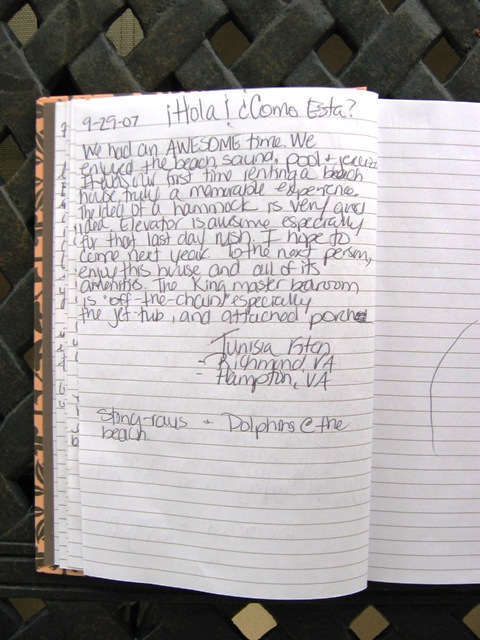 9-29-07 ¡Hola! ¿Como Esta?
We had an AWESOME time. We
enjoyed the beach sound, pool + jacuzzi
It was our first time renting a beach
house truly a memorable experience.
The idea of a hammock is very good
idea. Elevator is awesome especially
for that last day rush. I hope to
come next year. To the next person,
enjoy this house and all of its
amenities. The King master bedroom
is "off-the-chain" especially
the jet-tub, and attached porches
Tunisia
- Richmond, VA
- Hampton, VA
Sting-rays + Dolphins @ the
beach